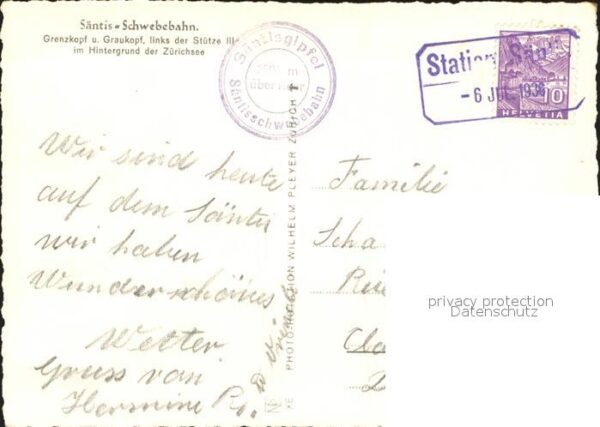 Säntis-Schwebebahn.
Grenzkopf u. Graukopf, links der Stütze III
im Hintergrund der Zürichsee
Säntisgipfel
über Meer
Säntisschwebebahn
Station Sän
-6 JUL 1936
10
HELVETIA
Wir sind heute
auf dem Säntis
wir haben
Wunderschönes
Wetter
Gruss von
Hermine
PHOTOGR. WILHELM PLEYER ZÜRICH
Familie
Scha
privacy protection
Datenschutz